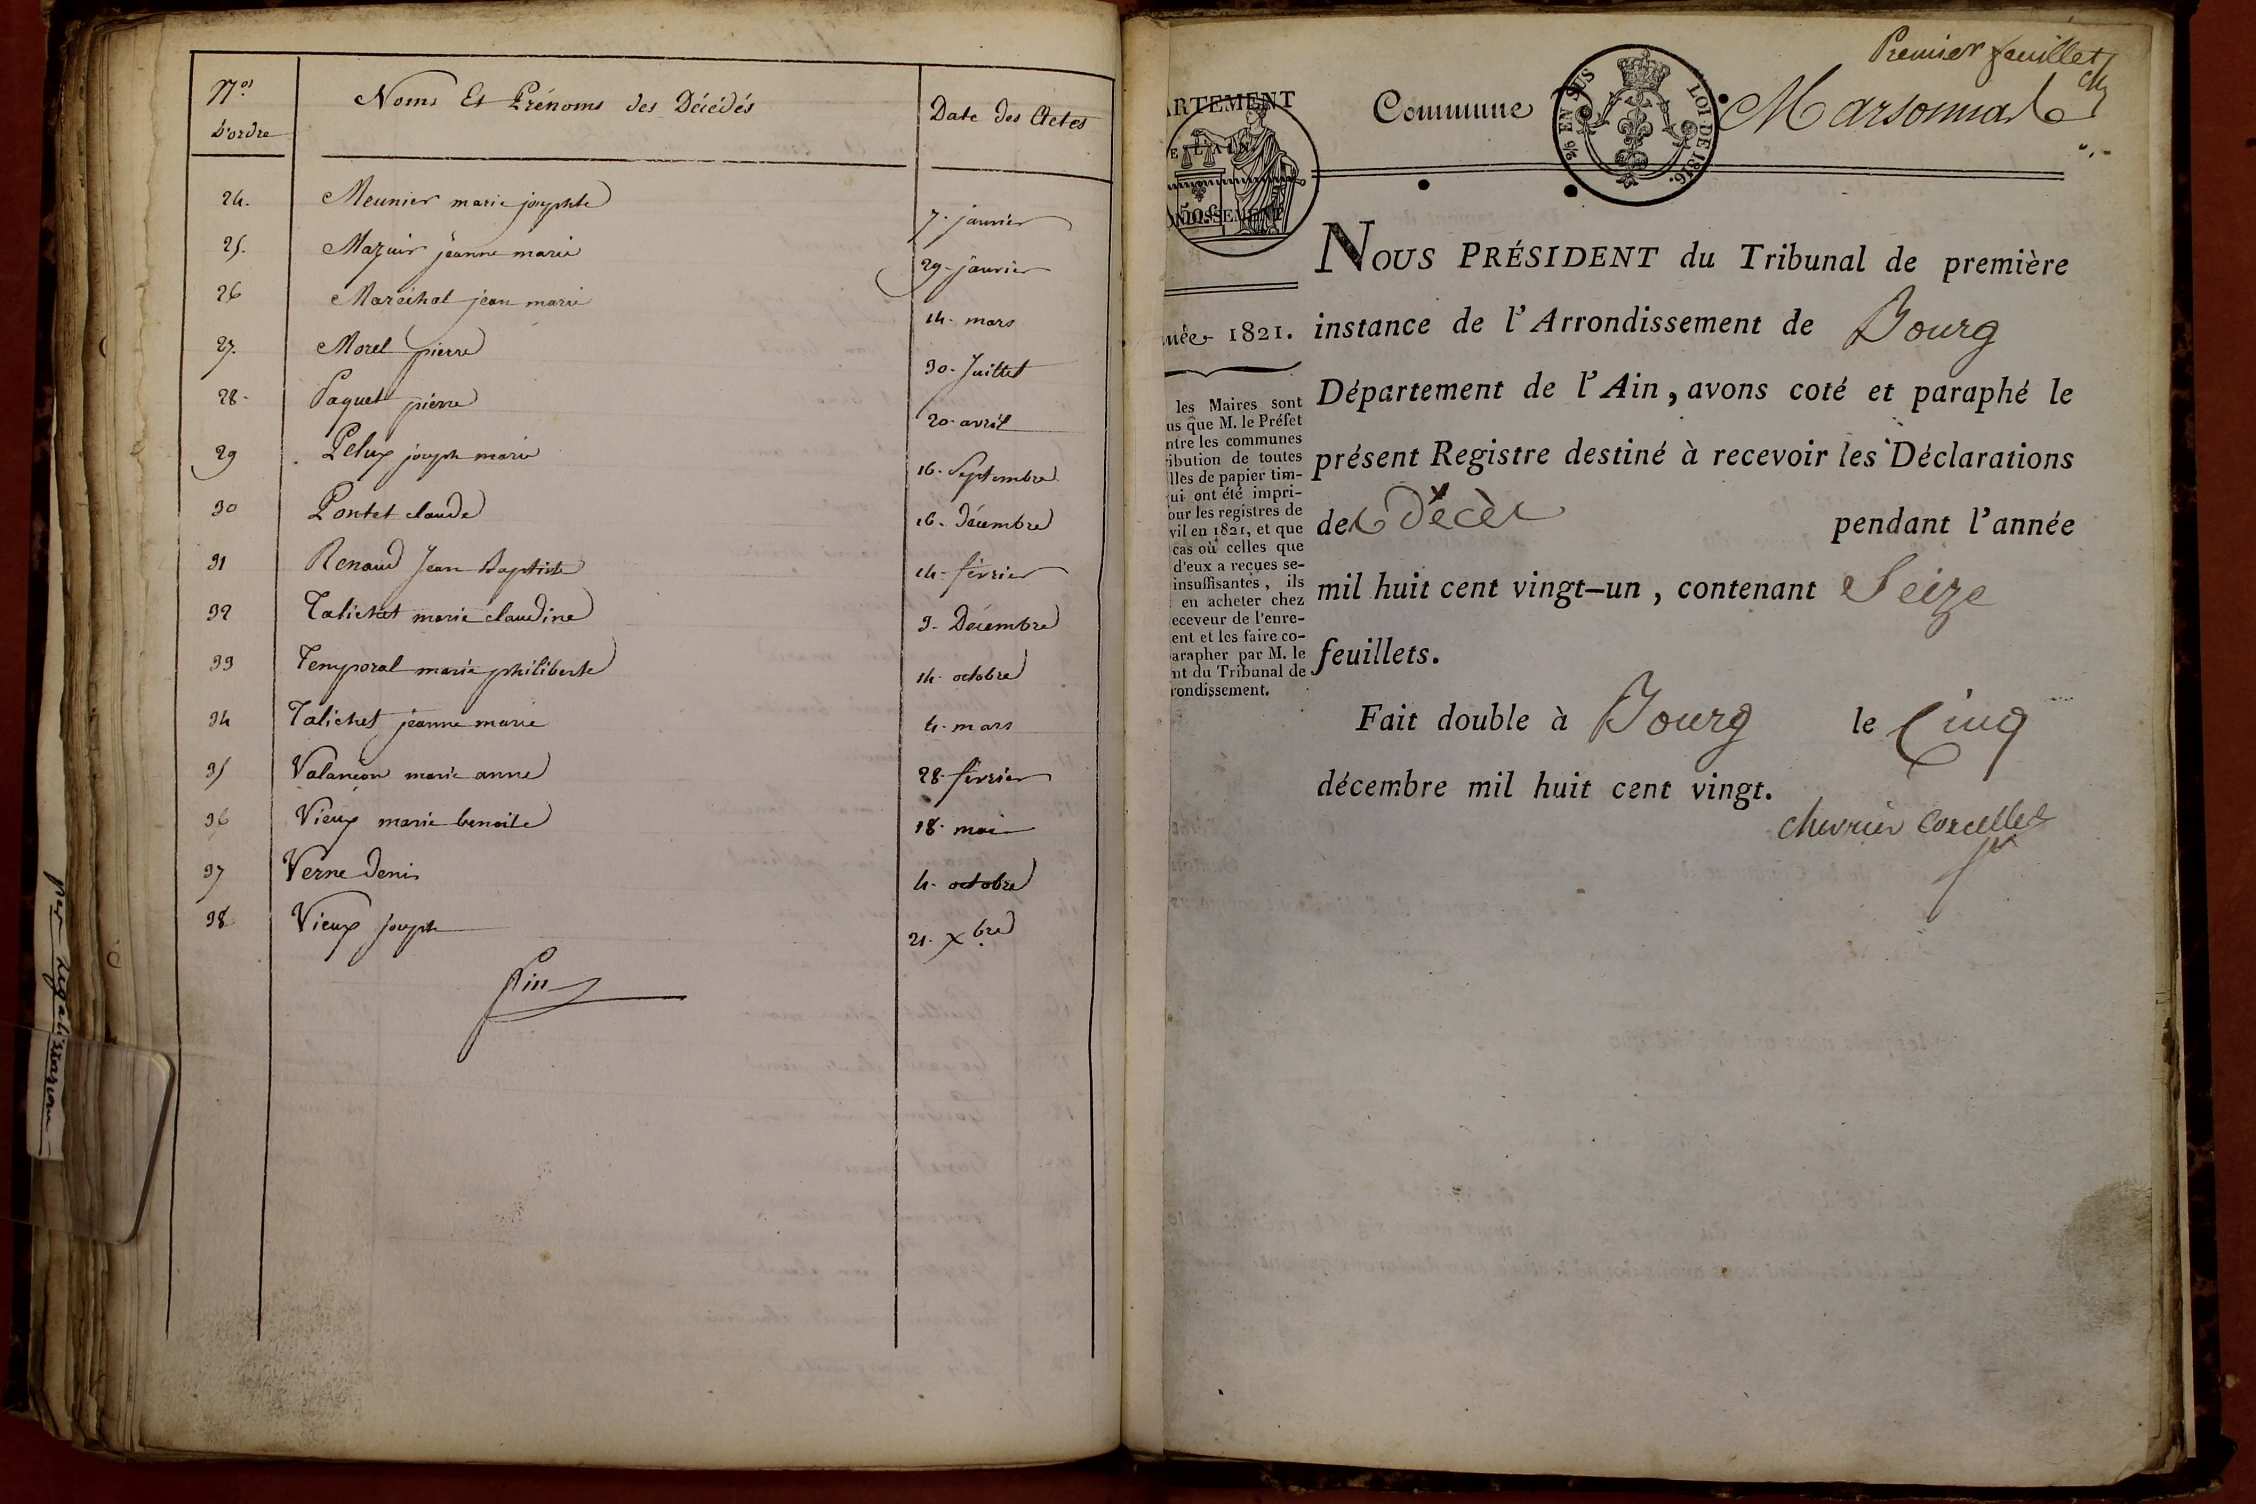 Nos d'ordre
Noms Et Prénoms des Décédés
Date des Actes
24. Meunier marie josephte 7. janvier
25. Mazuir jeanne marie 29. janvier
26 Maréchal jean marie 14. mars
27. Morel pierre 30. Juillet
28. Paquet pierre 20. avril
29 Pelux joseph marie 16. Septembre
30 Pontet claude 16. Décembre
31 Renaud Jean Baptiste 14. février
32 Talichet marie claudine 3. Décembre
33 Temporal marie philiberte 14. octobre
34 Talichet jeanne marie 4. mars
35 Valançon marie anne 28. février
36 Vieux marie benoite 18. mai
37 Verne Denis 4. octobre
38 Vieux joseph 21. Xbre
Fin
Premier feuillet
Commune
Marsonnas
2/6 EN SUS
LOI DE 1816.
ARTEMENT
E L'AIN
50 c
ONDISSEMENT
née 1821.
les Maires sont
us que M. le Préfet
ntre les communes
ibution de toutes
lles de papier tim-
ui ont été impri-
our les registres de
vil en 1821, et que
cas où celles que
d'eux a reçues se-
insuffisantes, ils
en acheter chez
eceveur de l'enre-
ent et les faire co-
arapher par M. le
nt du Tribunal de
rondissement.
NOUS PRÉSIDENT du Tribunal de première
instance de l'Arrondissement de Bourg
Département de l'Ain, avons coté et paraphé le
présent Registre destiné à recevoir les Déclarations
de Décès pendant l'année
mil huit cent vingt-un, contenant Seize
feuillets.
Fait double à Bourg le Cinq
décembre mil huit cent vingt.
chevrier Corcelles